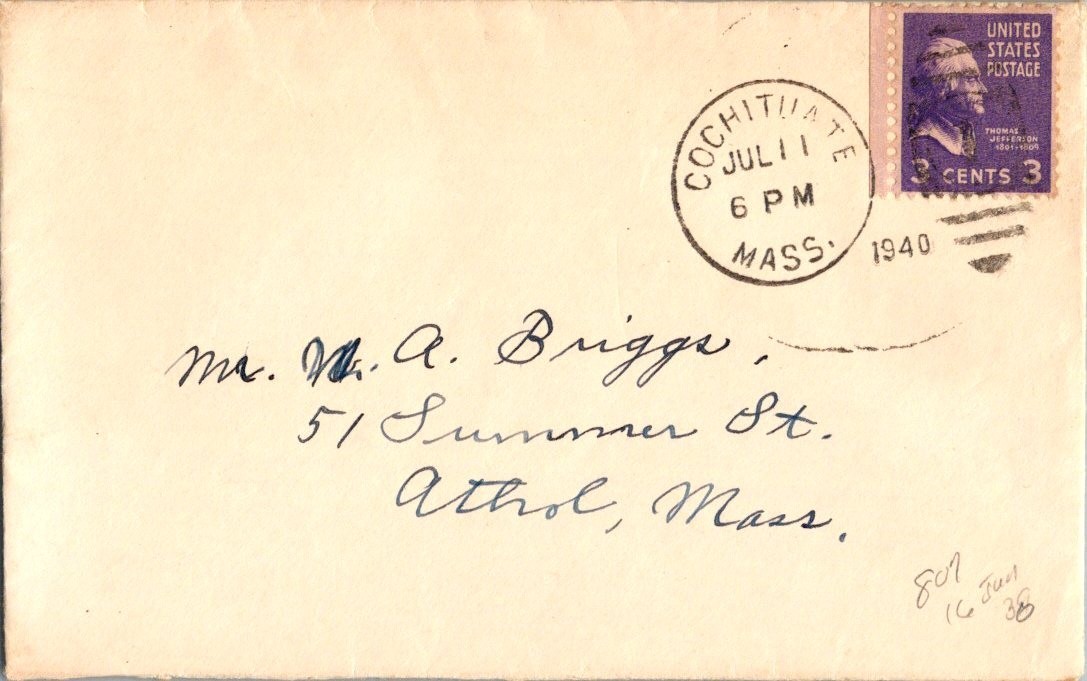 UNITED
STATES
POSTAGE
THOMAS
JEFFERSON
1801-1809
3 CENTS 3
COCHITUATE
JUL 11
6 PM
MASS.
1940
Mr. W. A. Briggs,
51 Summer St.
Athol, Mass.
807
16 Jun
38